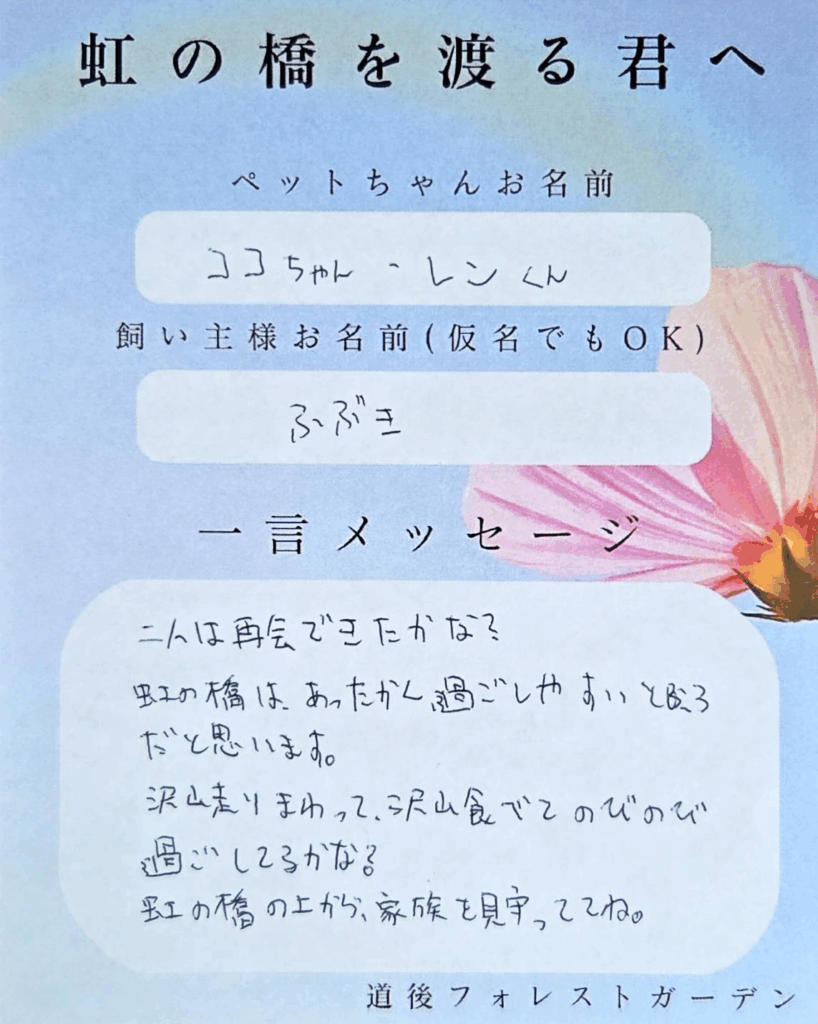 虹の橋を渡る君へ
ペットちゃんお名前
ココちゃん・レンくん
飼い主様お名前(仮名でもOK)
ふぶき
一言メッセージ
二人は再会できたかな?
虹の橋は、あったかく過ごしやすいところ
だと思います。
沢山走りまわって、沢山食べてのびのび
過ごしてるかな?
虹の橋の上から、家族を見守っててね。
道後フォレストガーデン